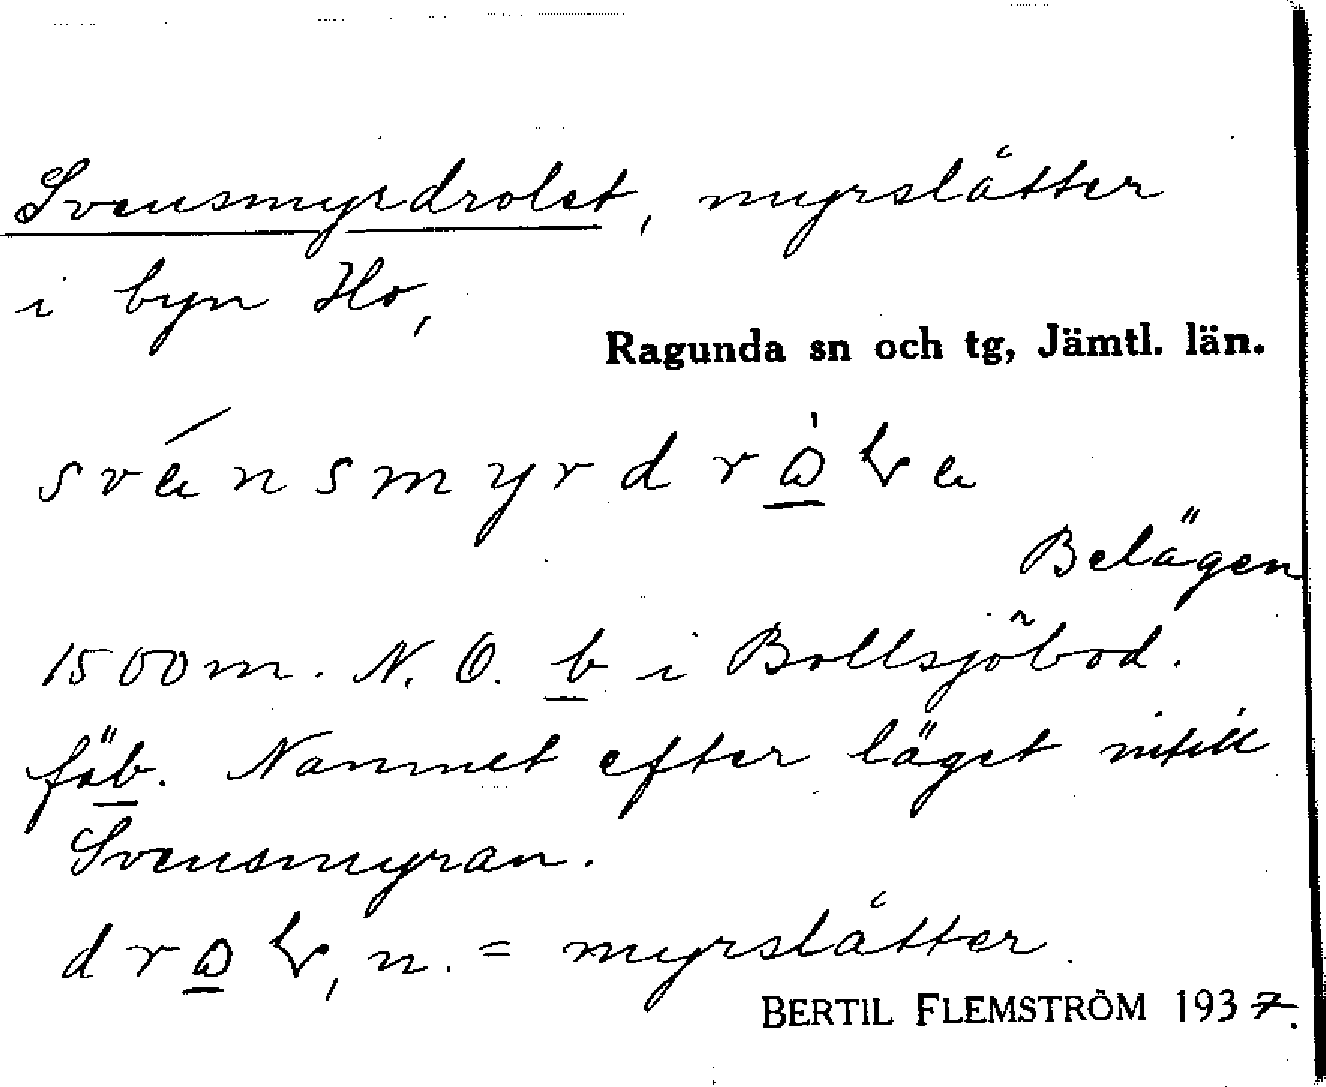 Svensmyrdrolet, myrslåtter
i byn Ho,
Ragunda sn och tg, Jämtl. län.
Belägen
1500 m. N. O. b i Bollsjöbod.
fäb. Namnet efter läget intill
Svensmyran.
n. = myrslåtter.
BERTIL FLEMSTRÖM 1937.